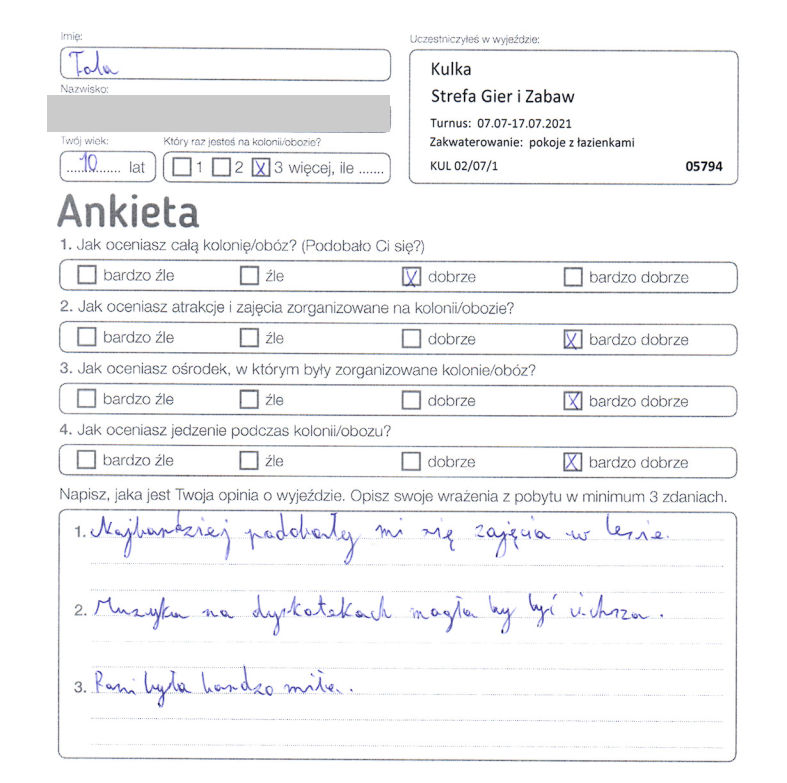 Imię:
Tola
Nazwisko:
Twój wiek:
10 lat
Który raz jesteś na kolonii/obozie?
1 2 X 3 więcej, ile .......
Uczestniczyłeś w wyjeździe:
Kulka
Strefa Gier i Zabaw
Turnus: 07.07-17.07.2021
Zakwaterowanie: pokoje z łazienkami
KUL 02/07/1 05794
Ankieta
1. Jak oceniasz całą kolonię/obóz? (Podobało Ci się?)
bardzo źle źle X dobrze bardzo dobrze
2. Jak oceniasz atrakcje i zajęcia zorganizowane na kolonii/obozie?
bardzo źle źle dobrze X bardzo dobrze
3. Jak oceniasz ośrodek, w którym były zorganizowane kolonie/obóz?
bardzo źle źle dobrze X bardzo dobrze
4. Jak oceniasz jedzenie podczas kolonii/obozu?
bardzo źle źle dobrze X bardzo dobrze
Napisz, jaka jest Twoja opinia o wyjeździe. Opisz swoje wrażenia z pobytu w minimum 3 zdaniach.
1. Najbardziej podobały mi się zajęcia w lesie.
2. Muzyka na dyskotekach mogła by być cichsza.
3. Pani była bardzo miła.